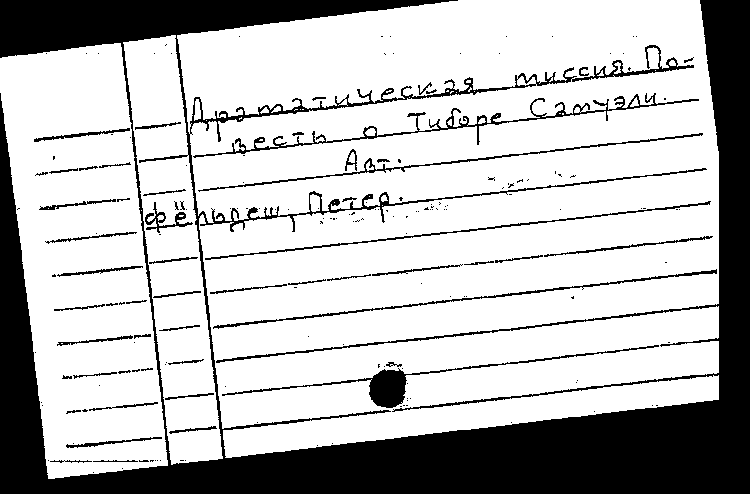 Драматическая миссия. По-
весть о Тиборе Самуэли.
Авт:
Фёльдеш, Петер.